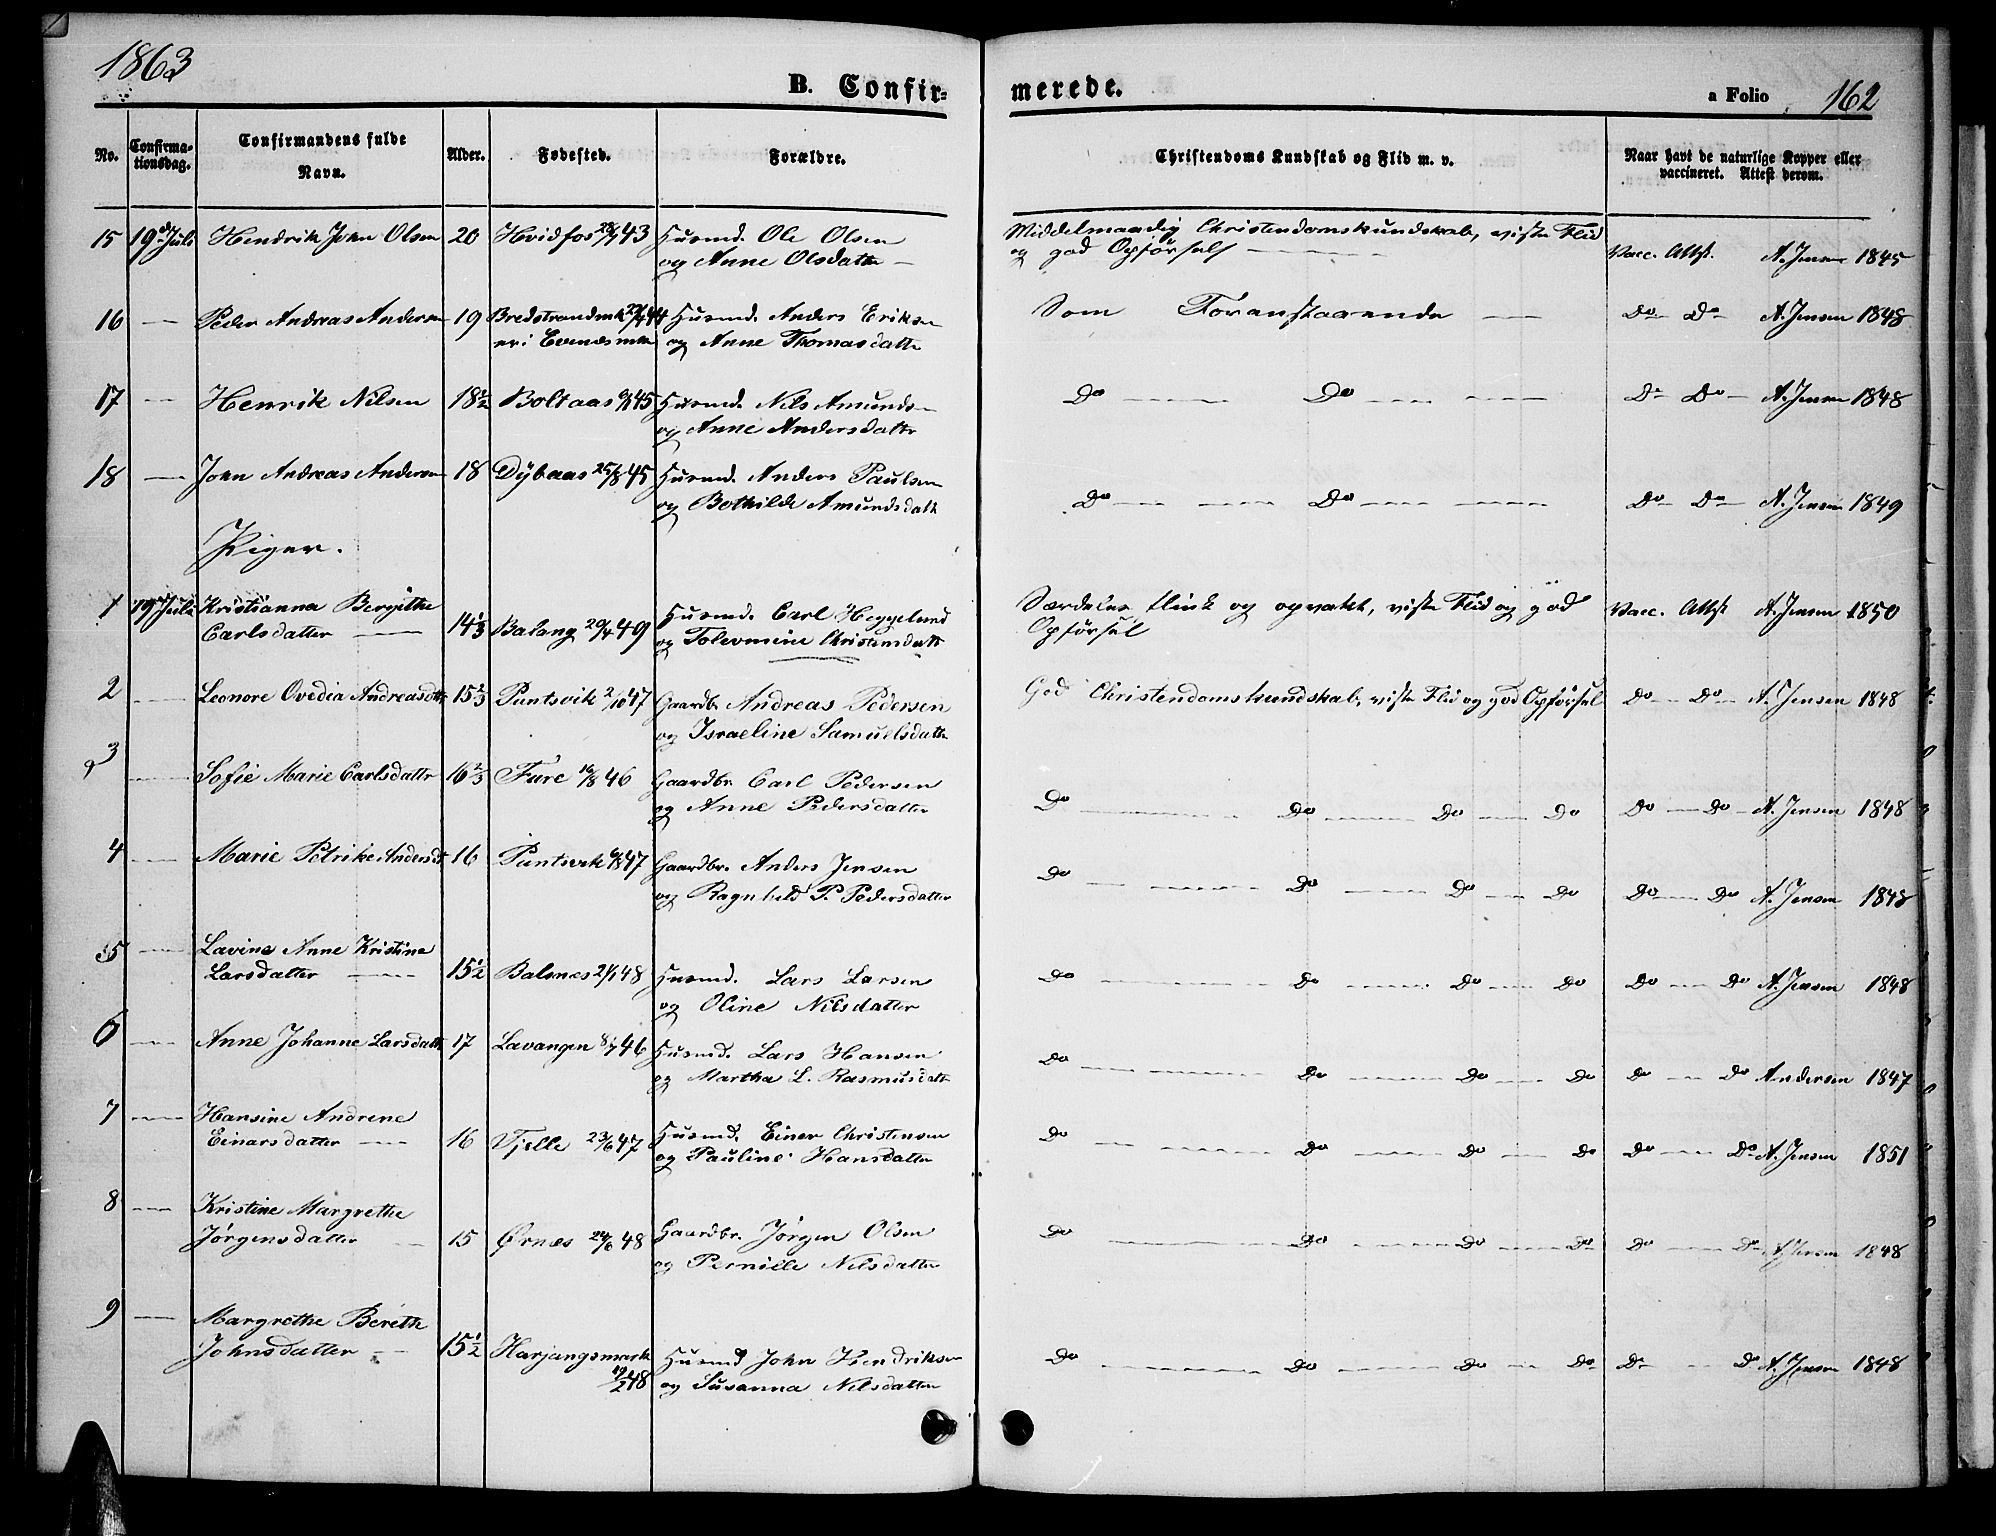 1863
B. Confir-
merede.
a Folio 162
No.
Confirma-
tionsdag.
Confirmandens fulde
Navn.
Alder.
Fødested.
Forældre.
Christendoms Kundskab og Flid m. v.
Naar havt de naturlige Kopper eller
vaccineret. Attest derom.
15 19de Juli Hendrik John Olsen 20 Hvidfos 43 Husmd. Ole Olsen
og Anne Olsdatter
Middelmaadig Christendomskundskab, viste Flid
og god Opførsel
Vacc. Attst. A. Jensen 1845
16 — Peder Andreas Andersen 19 44 Husmd. Anders Eriksen
og Anne Thomasdatter
Som Foranstaaende — Do Do A. Jensen 1848
17 — Henrik Nilsen 18½ Boltaas 45 Husmd. Nils Amundsen
og Anne Andersdatter
Do — Do — Do Do A. Jensen 1848
18 — John Andreas Andersen 18 Dybaas 25/8 45 Husmd. Anders Paulsen
og Bothilde Amundsdatt
Do — Do — Do Do A. Jensen 1849
Piger.
1 19 Juli Kristianna Bergithe
Carlsdatter — 14⅓ Balang 20/4 49 Husmd. Carl Heggelund
og Christensdatt
Særdeles flink og opvakt, viste Flid og god
Opførsel
Vacc. Attst A. Jensen 1850
2 — Leonore Ovedia Andreasdtr 15⅔ Puntsvik 2/10 47 Gaardbr Andreas Pedersen
og Israeline Samuelsdatter
God Christendomskundskab, viste Flid og god Opførsel Do — Do — A. Jensen 1848
3 — Sofie Marie Carlsdattr 16⅔ Fure 16/8 46 Gaardbr. Carl Pedersen
og Anne Pedersdatter
Do — Do — Do — Do Do — Do — A. Jensen 1848
4 — Marie Petrike Andersdt 16 Puntsvik 47 Gaardbr. Anders Jensen
og Ragnhild P. Pedersdatter
Do — Do — Do — Do Do — Do A. Jensen 1848
5 — Lavine Anne Kristine
Larsdatter — 15½ Balsnes 21/1 48 Husmd. Lars Larsen
og Oline Nilsdatter
Do — Do — Do — Do Do — Do A. Jensen 1848
6 — Anne Johanne Larsdatt 17 Lavangen 46 Husmd. Lars Hansen
og Martha L. Rasmusdatt
Do — Do — Do — Do Do — Do Andersen 1847
7 — Hansine Andrene
Einarsdatter — 16 Tjelle 23/6 47 Husmd. Einer Christensen
og Pauline Hansdatter
Do — Do — Do — Do Do — Do A. Jensen 1851
8 — Kristine Margrethe
Jørgensdatter — 15 Ørnes 24/6 48 Gaardbr. Jørgen Olsen
og Pernille Nilsdatter
Do — Do — Do — Do Do — Do A. Jensen 1848
9 — Margrethe Berethe
Johnsdatter — 15½ Harjangsmark
48 Husmd John Hendriksen
og Susanna Nilsdatter
Do — Do — Do — Do Do — Do A. Jensen 1848